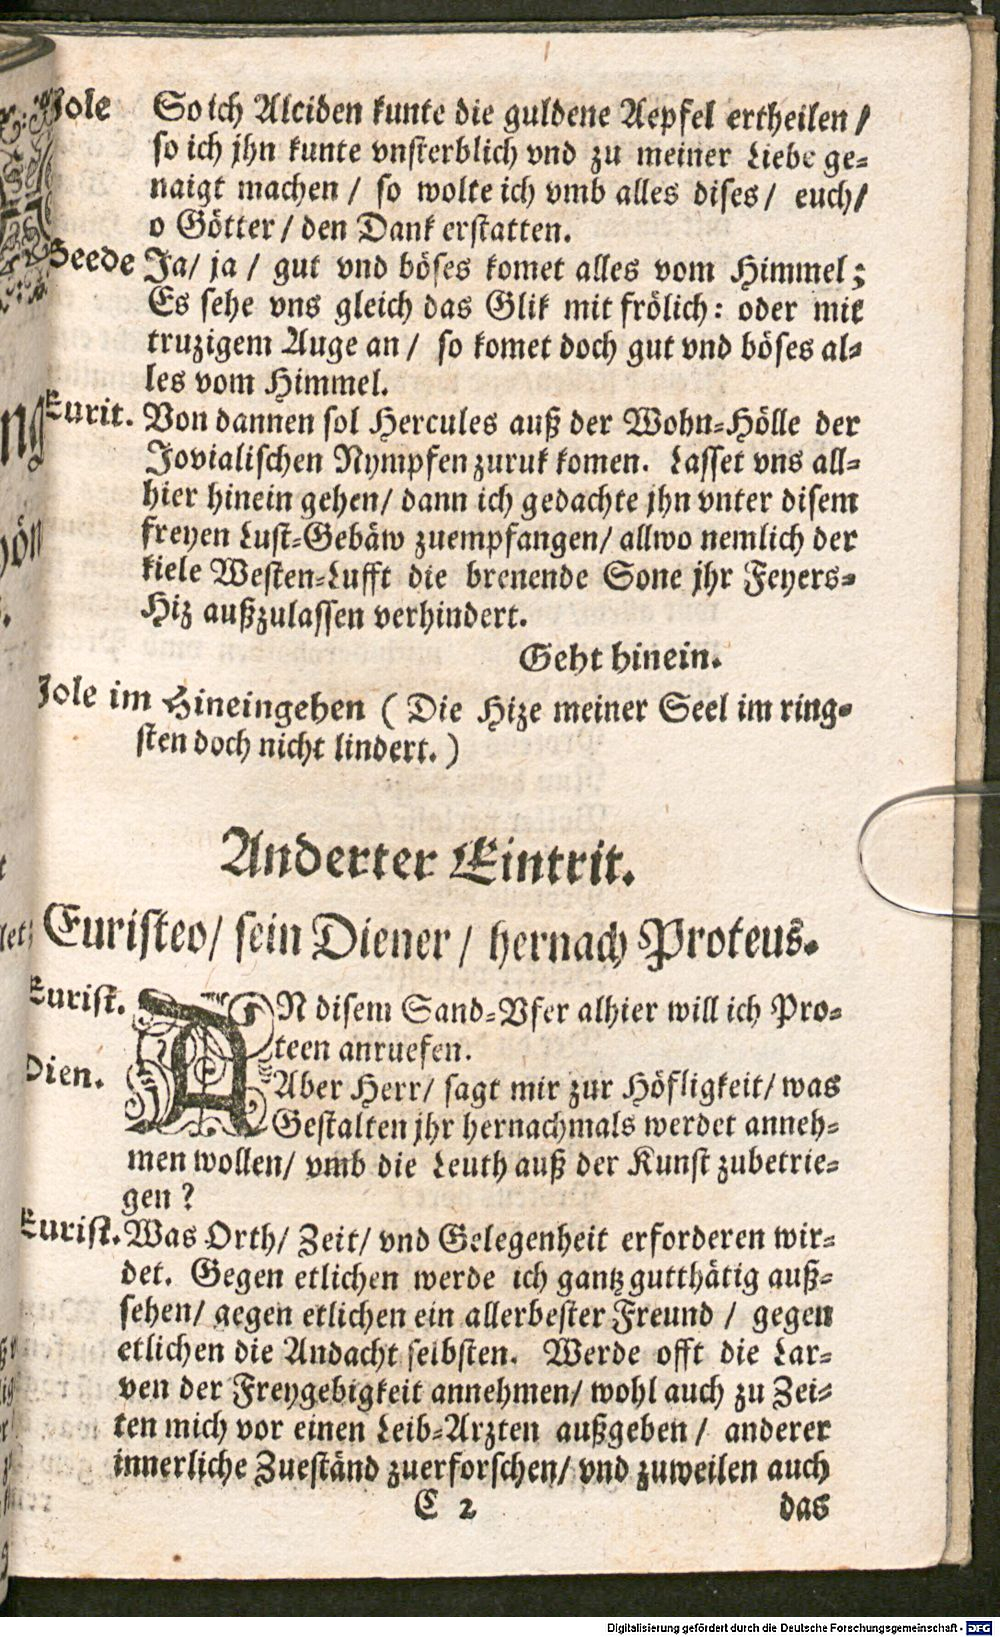 Jole So ich Alciden kunte die guldene Aepfel ertheilen /
so ich jhn kunte vnsterblich vnd zu meiner Liebe ge-
naigt machen / so wolte ich vmb alles dises / euch /
o Götter / den Dank erstatten.
Beede Ja / ja / gut vnd böses komet alles vom Himmel;
Es sehe vns gleich das Glik mit frölich: oder mit
truzigem Auge an / so komet doch gut vnd böses al-
les vom Himmel.
Eurit. Von dannen sol Hercules auß der Wohn-Hölle der
Jovialischen Nympfen zuruk komen. Lasset vns all-
hier hinein gehen / dann ich gedachte jhn vnter disem
freyen Lust-Gebäw zuempfangen / allwo nemlich der
kiele Westen-Lufft die brenende Sone jhr Feyers-
Hiz außzulassen verhindert.
Geht hinein.
Jole im Hineingehen ( Die Hize meiner Seel im ring-
sten doch nicht lindert. )
Anderter Eintrit.
Euristeo / sein Diener / hernach Proteus.
Eurist. AN disem Sand-Vfer alhier will ich Pro-
teen anruefen.
Dien. Aber Herr / sagt mir zur Höfligkeit / was
Gestalten jhr hernachmals werdet anneh-
men wollen / vmb die Leuth auß der Kunst zubetrie-
gen ?
Eurist. Was Orth / Zeit / vnd Gelegenheit erforderen wir-
det. Gegen etlichen werde ich gantz gutthätig auß-
sehen / gegen etlichen ein allerbester Freund / gegen
etlichen die Andacht selbsten. Werde offt die Lar-
ven der Freygebigkeit annehmen / wohl auch zu Zei-
ten mich vor einen Leib-Arzten außgeben / anderer
innerliche Zueständ zuerforschen / vnd zuweilen auch
C 2 das
Digitalisierung gefördert durch die Deutsche Forschungsgemeinschaft - DFG